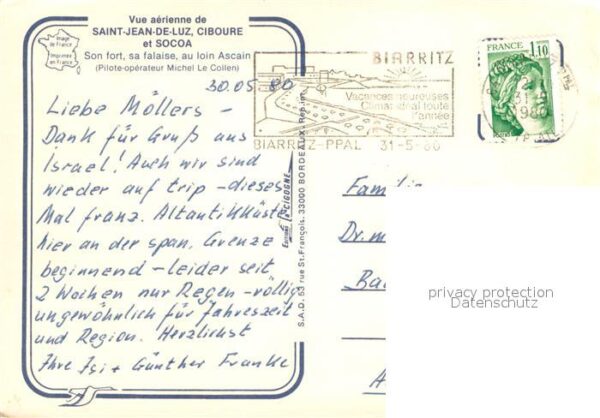 Vue aérienne de
SAINT-JEAN-DE-LUZ, CIBOURE
et SOCOA
Son fort, sa falaise, au loin Ascain
(Pilote-opérateur Michel Le Collen)
Image de France
Imprimée en France
30.05.80
Liebe Möllers –
Dank für Gruß aus
Israel! Auch wir sind
wieder auf trip – dieses
Mal franz. Altantikküste
hier an der span. Grenze
beginnend – leider seit
2 Wochen nur Regen – völlig
ungewöhnlich für Jahreszeit
und Region. Herzlichst
Ihre Isi + Günther Franke
S.A.D. 53 rue St.-François, 33000 BORDEAUX
BIARRITZ
Vacances heureuses
Climat idéal toute
l'année
BIARRITZ-PPAL 31-5-80
FRANCE 1,10
31
1980
Famili
Dr. m
Ba
privacy protection
Datenschutz